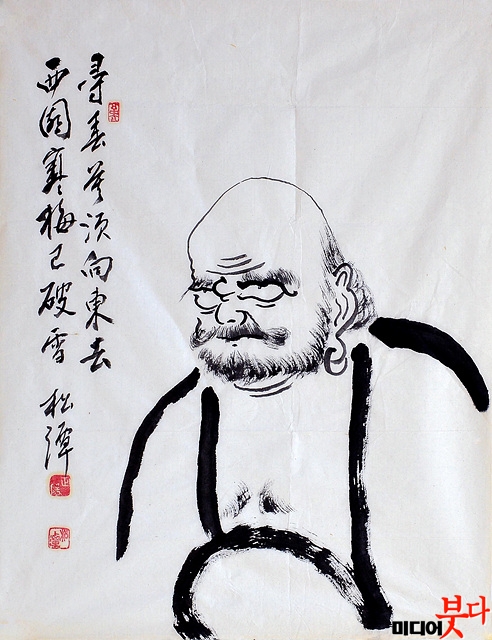 尋春莫須向東去
西園寒梅已破雪
松潭
미디어붓다